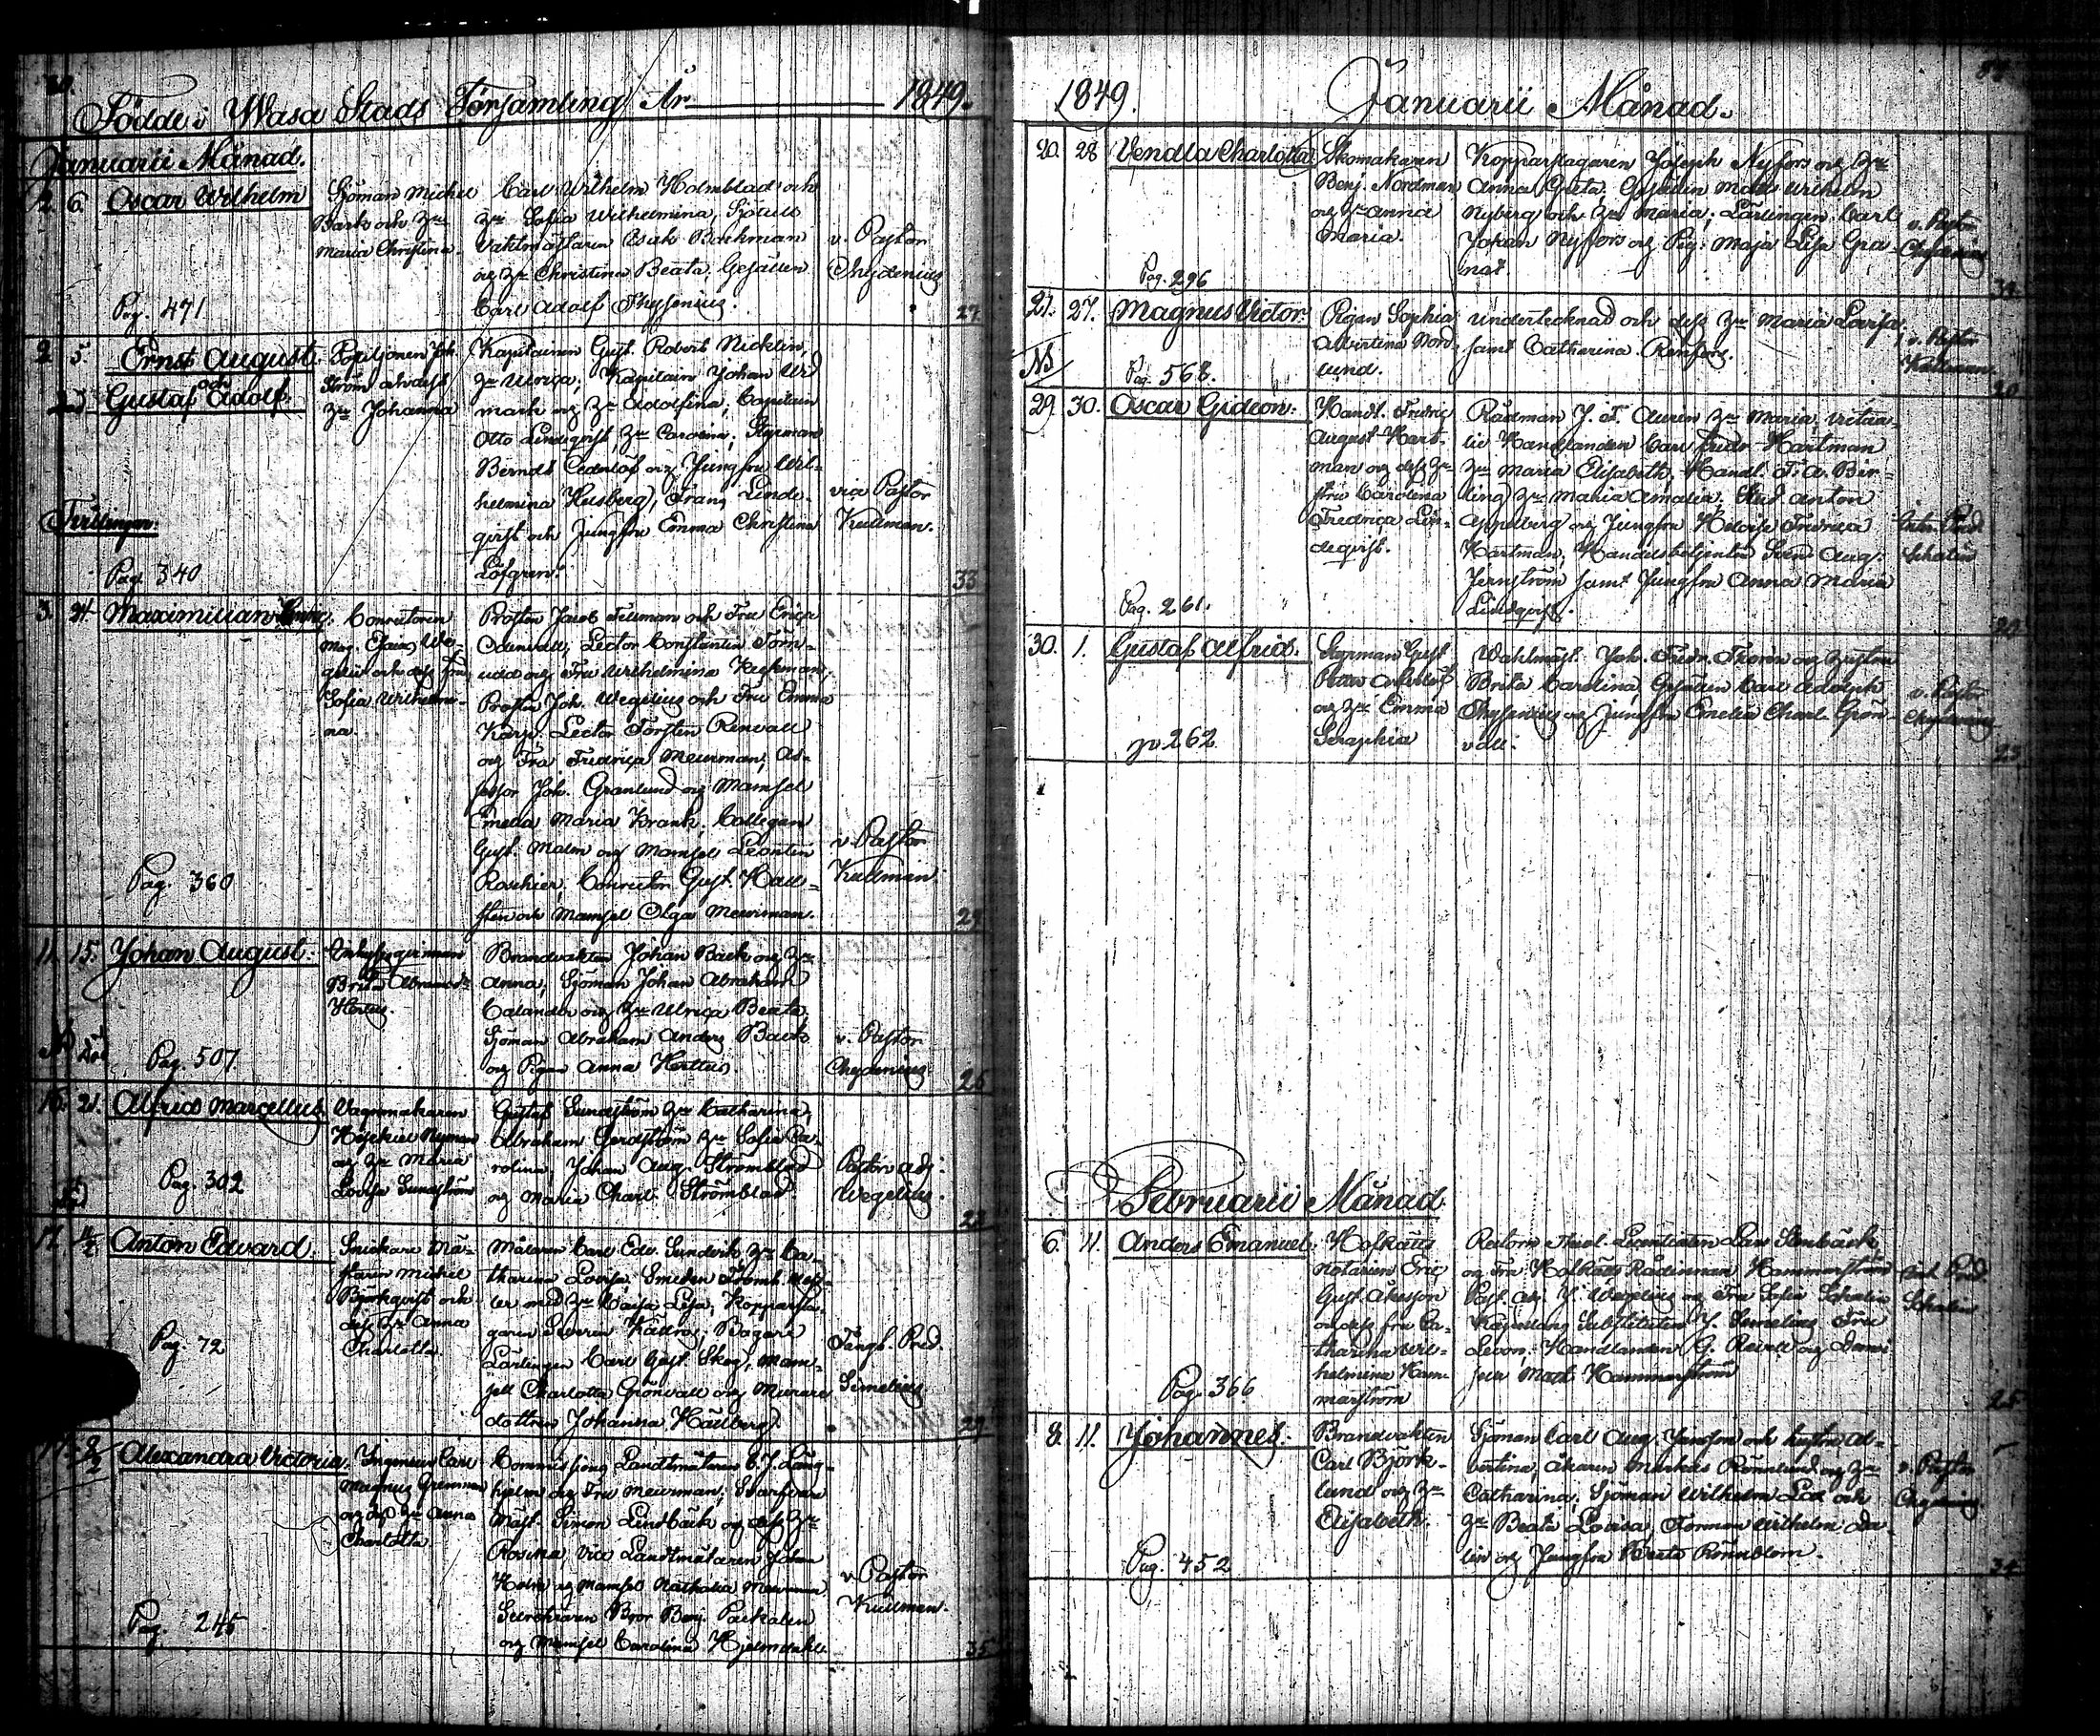 Födde i Wasa Stads Församling År 1849.
Januarii Månad.
2. 6. Oscar Wilhelm
Sjöman Michel
Back och Hu
Maria Christina.
Carl Wilhelm Holmblad och
Hu Sofia Wilhelmina, Sjötulls
Vaktmästaren Isak Backman
og Hu Christina Beata. Gesällen
Carl Adolf Thyselius.
v. Pastor
Chydenius
Pag. 471
27.
2. 5. Ernst August
och
Gustaf Adolf.
Tvillingar.
Postiljonen Joh.
Ström och dess
Hu Johanna
Kapitainen Gust. Robert Nicklin,
Hu Ulrica; Kapitain Johan Wid
mark og Hu Adolfina; Capitain
Otto Lindeqvist, Hu Carolina; Styrman
Berndt Cederlöf og Jungfru Wil-
helmina Hesberg, Frans Linde-
qvist och Jungfru Emma Christina
Löfgren.
via Pastor
Kullman.
Pag. 340
33
3. 24. Maximilian
Conrectoren
Mag. Esaias We-
gelius och dess Fru
Sofia Wilhelmi-
na.
Prosten Jacob Tellman och Fru Erica
Odenvall; Lector Constantin Törn-
udd og Fru Wilhelmina Heckman,
Prosten Joh. Wegelius och Fru Emma
Karp. Lector Torsten Renvall
og Fru Fredrica Meurman, As-
sessor Joh. Granlund og Mamsel
Emelia Maria Krank, Collegan
Gust. Malm og Mamsel Leontin
Roschier, Conrector Gust. Häll-
sten och Mamsel Olga Meurman.
v. Pastor
Kullman
Pag. 360
29.
11. 15. Johan August.
Enkyssqvinnan
Brita Abramsdr
Herttus.
Brandvakten Johan Back og Hu
Anna, Sjöman Johan Abraham
Calander og Hu Ulrica Beata,
Sjöman Abraham Anders Back
og Pigan Anna Herttus
v. Pastor
Chydenius.
Pag. 507
25
16. 21. Alfred Marcellus
Vagnmakaren
Hesekiel Nyman
og Hu Maria
Lovisa Sundström
Gustaf Sundström Hu Catharina,
Abraham Gerdström Hu Sofia Ca-
rolina, Johan Aug. Strömblad
og Maria Charl. Strömblad.
Pastors adj.
Wegelius.
Pag. 302
17. 4/2 Anton Edvard.
Snickare Mä-
staren Michel
Björkqvist och
dess Hu Anna
Charlotta
Målaren Carl Edv. Sundvik Hu Ca-
tharina Lovisa. Smeden
ler med Hu Caisa Lisa, Kopparsla-
garen Severin Källros; Bagare
Lärlingen Carl Gust. Skog, Mam-
sell Charlotta Grönvall og Murare
dottren Johanna Hallberg.
Fängl. Pred.
Simelius
Pag. 72
29
17. 8/2 Alexandra Victoria.
Ingenieur Carl
Magnus Grenman
og dess Hu Anna
Charlotta
Commissions Landtmätaren C. J. Lång-
hjelm og Fru Meurman; Svarfvare
Mäst. Simon Lindbäck og dess Hu
Rosina, Vice Landtmätaren Johan
Holm og Mamsel Nathalia Meurman
Secreteraren Bror Benj. Packalen
og Mamsel Carolina Hjelmdahl
v. Pastor
Kullman.
Pag. 245
35
1849. Januarii Månad.
20. 28 Vendla Charlotta
Skomakaren
Benj. Nordman
og Hu Anna
Maria.
Kopparslagaren Joseph Nyfors og Hu
Anna Greta; Gesällen Mats Wilhelm
Nyberg och Hu Maria; Lärlingen Carl
Johan Nyfors og Pig: Maja Lisa Gra-
nat
v. Pastor
Chydenius
Pag. 296
34.
21. 27. Magnus Victor.
Pigan Sophia
Albertina Nord-
lund.
Undertecknad och dess Hu Maria Lovisa,
samt Catharina Renfors.
v. Pastor
Kullman.
Pag. 568.
20
29. 30. Oscar Gideon.
Handl. Fredric
August Hart-
man og dess Hu-
stru Carolina
Fredrica Lin-
deqvist.
Rådman J. F. Auren Hu Maria, Victua-
lie Handlanden Carl Fredr. Hartman
Hu Maria Elisabeth, Handl. F. A. Ber-
ling Hu Maria Amalia. Stud. Anton
Appelberg og Jungfru Heloise Fredrica
Hartman, Handelsbetjenten Sven Aug.
Jernström samt Jungfru Anna Maria
Lindqvist.
Pred.
Schalin
Pag. 261.
30. 1. Gustaf Alfred.
Styrman Gust.
og Hu Emma
Seraphia
Wahtmäst. Joh. Fredr. Thorén og Hustru
Brita Carolina, Gesällen Carl Adolph
Thyselius og Jungfru Emelia Charl. Grön-
vall.
v. Pastor
Chydenius
p. 262
25
Februarii Månad
6. 11. Anders Emanuel.
Hofrätts
notarien Eric
Gust. Åkesson
og dess fru Ca-
tharina Wil-
helmina Ham-
marström
Rectorn Theol. Licentiaten Lars Stenbäck
og Fru Hofrätts Rådinnan Hammarström
Past. Adj. J. Wegelius og Fru Sofia Schalin
Kapellans Substituten J. Simelius Fru
Levon; Handlanden G. Rewell og Demoi
sell Math. Hammarström
Pred.
Schalin
Pag. 366
25
8. 11. Johannes.
Brandvakten
Carl Björk-
lund og Hu
Elisabeth.
Sjöman Carl Aug. Jansson och hustru Al-
bertina, åkaren Markus Rönnlund og Hu
Catharina; Sjöman Wilhelm Lax och
Hu Beata Lovisa, Förman Wilhelm Da-
lin og Jungfru Beata Rönnblom.
v. Pastor
Chydenius
Pag. 452
34.